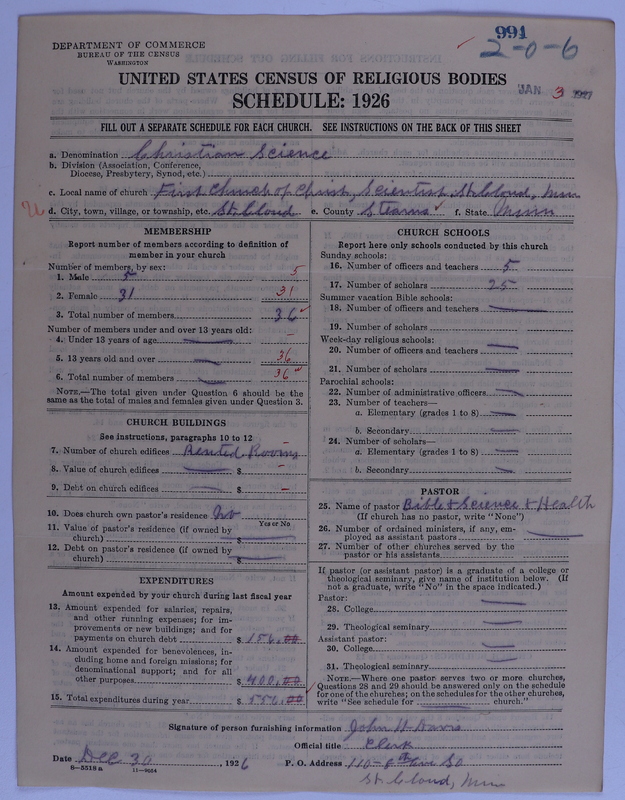 991
2-0-6
DEPARTMENT OF COMMERCE
BUREAU OF THE CENSUS
WASHINGTON
UNITED STATES CENSUS OF RELIGIOUS BODIES
JAN 3 1927
SCHEDULE: 1926
FILL OUT A SEPARATE SCHEDULE FOR EACH CHURCH. SEE INSTRUCTIONS ON THE BACK OF THIS SHEET
a. Denomination Christian Science
b. Division (Association, Conference,
Diocese, Presbytery, Synod, etc.)
c. Local name of church First Church of Christ, Scientist St. Cloud, Minn
d. City, town, village, or township, etc. St. Cloud e. County Stearns f. State Minn
MEMBERSHIP
Report number of members according to definition of
member in your church
Number of members, by sex:
1. Male 5 5
2. Female 31 31
3. Total number of members 36
Number of members under and over 13 years old:
4. Under 13 years of age
5. 13 years old and over 36
6. Total number of members 36
NOTE.—The total given under Question 6 should be
the same as the total of males and females given under Question 3.
CHURCH BUILDINGS
See instructions, paragraphs 10 to 12
7. Number of church edifices Rented Rooms
8. Value of church edifices $
9. Debt on church edifices $
10. Does church own pastor's residence No
Yes or No
11. Value of pastor's residence (if owned by
church) $
12. Debt on pastor's residence (if owned by
church) $
EXPENDITURES
Amount expended by your church during last fiscal year
13. Amount expended for salaries, repairs,
and other running expenses; for im-
provements or new buildings; and for
payments on church debt $ 156.00
14. Amount expended for benevolences, in-
cluding home and foreign missions; for
denominational support; and for all
other purposes $ 400.00
15. Total expenditures during year $ 556.00
CHURCH SCHOOLS
Report here only schools conducted by this church
Sunday schools:
16. Number of officers and teachers 5
17. Number of scholars 25
Summer vacation Bible schools:
18. Number of officers and teachers
19. Number of scholars
Week-day religious schools:
20. Number of officers and teachers
21. Number of scholars
Parochial schools:
22. Number of administrative officers
23. Number of teachers—
a. Elementary (grades 1 to 8)
b. Secondary
24. Number of scholars—
a. Elementary (grades 1 to 8)
b. Secondary
PASTOR
25. Name of pastor Bible & Science & Health
(If church has no pastor, write "None")
26. Number of ordained ministers, if any, em-
ployed as assistant pastors
27. Number of other churches served by the
pastor or his assistants
If pastor (or assistant pastor) is a graduate of a college or
theological seminary, give name of institution below. (If
not a graduate, write "No" in the space indicated.)
Pastor:
28. College
29. Theological seminary
Assistant pastor:
30. College
31. Theological seminary
NOTE.—Where one pastor serves two or more churches,
Questions 28 and 29 should be answered only on the schedule
for one of the churches; on the schedules for the other churches,
write "See schedule for church."
Signature of person furnishing information John H Davis
Official title Clerk
Date Dec 30, 1926 P. O. Address 110-6th Ave So
8-5518 a 11-9684
St. Cloud, Minn